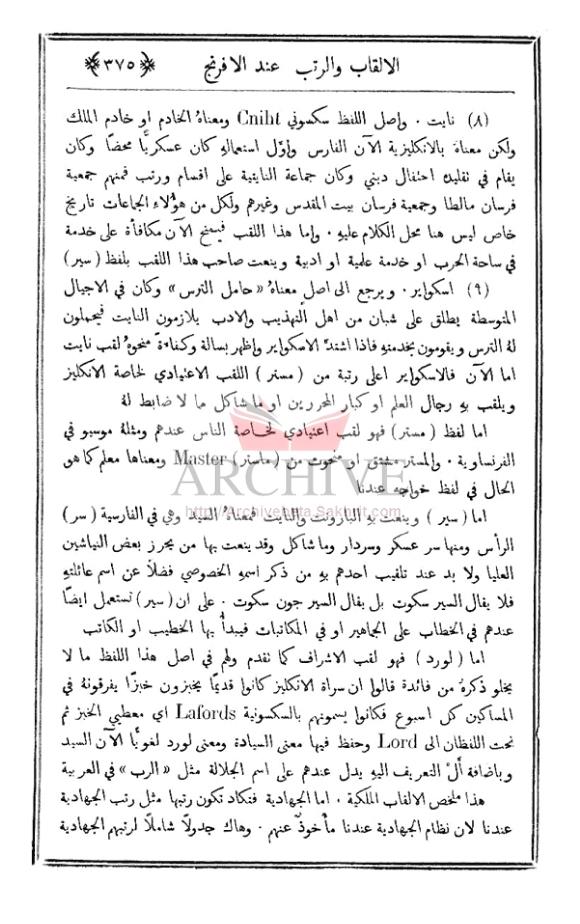 الالقاب والرتب عند الافرنج ﴿٣٧٥﴾
(٨) نايت . واصل اللفظ سكسوني Cniht ومعناهُ الخادم او خادم الملك
ولكن معناهُ بالانكليزية الآن الفارس واوّل استعمالهِ كان عسكريًّا محضًا وكان
يقام في تقليدهِ احتفال ديني وكان جماعة النايتية على اقسام ورتب فمنهم جمعية
فرسان مالطا وجمعية فرسان بيت المقدس وغيرهم ولكل من هؤُلاءِ الجماعات تاريخ
خاص ليس هنا محل الكلام عليهِ . واما هذا اللقب فيمنح الآن مكافأَة على خدمة
في ساحة الحرب او خدمة علمية او ادبية وينعت صاحب هذا اللقب بلفظ (سير)
(٩) اسكواير . ويرجع الى اصل معناهُ «حامل الترس» وكان في الاجيال
المتوسطة يطلق على شبان من اهل التهذيب والادب يلازمون النايت فيحملون
لهُ الترس ويقومون بخدمتهِ فاذا اشتدَّ الاسكواير واظهر بسالة وكفاءةً منحوهُ لقب نايت
اما الآن فالاسكواير اعلى رتبة من (مستر) اللقب الاعتيادي لخاصة الانكليز
ويلقب بهِ رجال العلم او كبار المحررين او ما شاكل ما لا ضابط لهُ
اما لفظ (مستر) فهو لقب اعتيادي لخاصة الناس عندهم ومثلهُ موسيو في
الفرنساوية . والمستر مشتق او منحوت من (ماستر) Master ومعناها معلم كما هو
الحال في لفظ خواجه عندنا
اما (سير) وينعت بهِ البارونت والنايت فمعناهُ السيد وهي في الفارسية (سر)
الرأس ومنها سر عسكر وسردار وما شاكل وقد ينعت بها من يحرز بعض النياشين
العليا ولا بد عند تلقيب احدهم بهِ من ذكر اسمهِ الخصوصي فضلاً عن اسم عائلتهِ
فلا يقال السير سكوت بل يقال السير جون سكوت . على ان (سير) تستعمل ايضًا
عندهم في الخطاب على الجماهير او في المكاتبات فيبدأُ بها الخطيب او الكاتب
اما (لورد) فهو لقب الاشراف كما تقدم ولهم في اصل هذا اللفظ ما لا
يخلو ذكرهُ من فائدة قالوا ان سراة الانكليز كانوا قديمًا يخبزون خبزًا يفرقونهُ في
المساكين كل اسبوع فكانوا يسمونهم بالسكسونية Lafords اي معطيي الخبز ثم
نحت اللفظان الى Lord وحفظ فيها معنى السيادة ومعنى لورد لغويًّا الآن السيد
وباضافة أَلْ التعريف اليهِ يدل عندهم على اسم الجلالة مثل «الرب» في العربية
هذا ملخص الالقاب الملكية . اما الجهادية فتكاد تكون رتبها مثل رتب الجهادية
عندنا لان نظام الجهادية عندنا مأخوذٌ عنهم . وهاك جدولاً شاملاً لرتبهم الجهادية
ARCHIVE
http://Archivebeta.Sakhrit.com